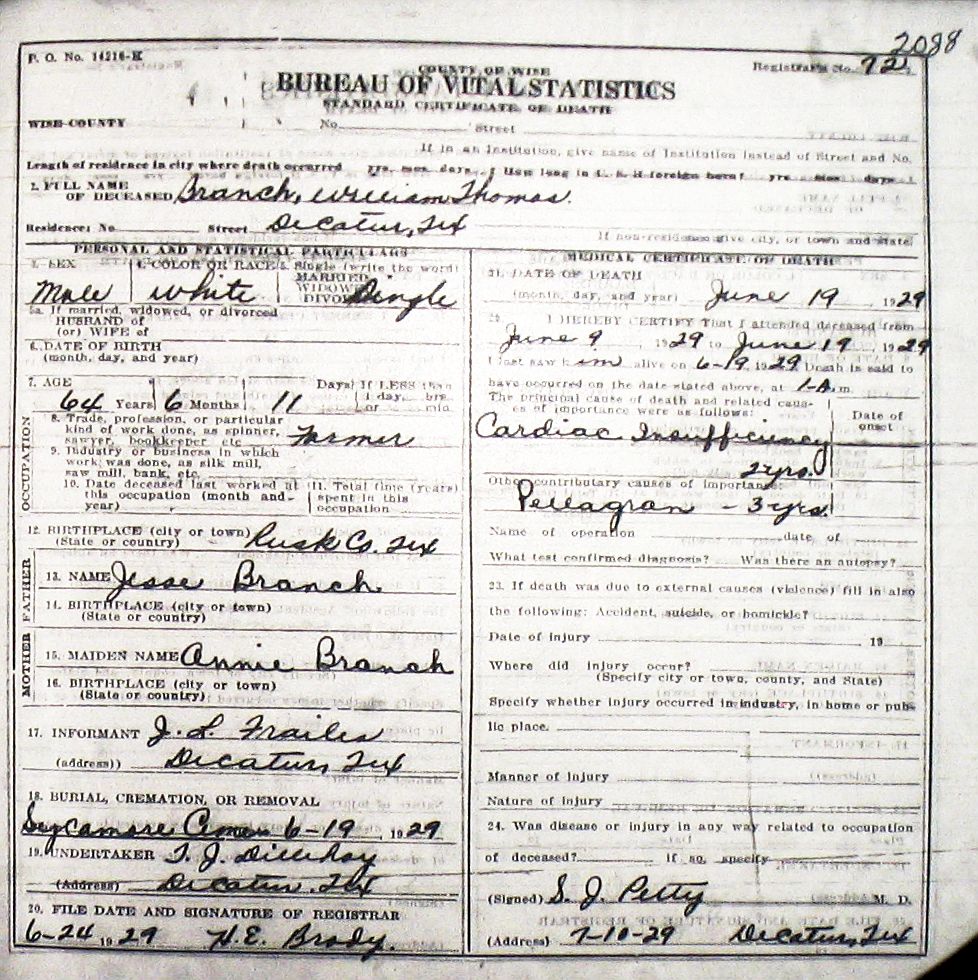 2088
P. O. No. 14216-K
COUNTY OF WISE
Registrar's No. 92
BUREAU OF VITAL STATISTICS
STANDARD CERTIFICATE OF DEATH
WISE COUNTY No. Street
If in an Institution, give name of Institution instead of Street and No.
Length of residence in city where death occurred yrs. mos. days. How long in U. S. if foreign born? yrs mos days
2. FULL NAME
OF DECEASED Branch, William Thomas.
Residence: No Street Decatur, Tex
If non-residence give city, or town and state
PERSONAL AND STATISTICAL PARTICULARS
3. SEX 4. COLOR OR RACE 5. Single (write the word)
MARRIED
WIDOWED
DIVORCED
Male White Single
5a. If married, widowed, or divorced
HUSBAND of
(or) WIFE of
6. DATE OF BIRTH
(month, day, and year)
7. AGE Days If LESS than
1 day, hrs.
64 Years 6 Months 11 or min
OCCUPATION
8. Trade, profession, or particular
kind of work done, as spinner,
sawyer, bookkeeper etc Farmer
9. Industry or business in which
work was done, as silk mill,
saw mill, bank, etc.
10. Date deceased last worked at
this occupation (month and
year)
11. Total time (years)
spent in this
occupation
12. BIRTHPLACE (city or town)
(State or country) Rusk Co. Tex
FATHER
13. NAME Jesse Branch
14. BIRTHPLACE (city or town)
(State or country)
MOTHER
15. MAIDEN NAME Annie Branch
16. BIRTHPLACE (city or town)
(State or country)
17. INFORMANT J. L. Frailes
(address)) Decatur, Tex
18. BURIAL, CREMATION, OR REMOVAL
Sycamore 6-19 1929
19. UNDERTAKER T. J.
(Address) Decatur, Tex
20. FILE DATE AND SIGNATURE OF REGISTRAR
6-24 1929 H. E. Brady.
MEDICAL CERTIFICATE OF DEATH
21. DATE OF DEATH
(month, day, and year) June 19 1929
22. I HEREBY CERTIFY That I attended deceased from
June 9 1929 to June 19 1929
I last saw him alive on 6-19 1929 Death is said to
have occurred on the date stated above, at 1-A m.
The principal cause of death and related caus-
es of importance were as follows:
Date of
onset
Cardiac Insufficiency
2 yrs.
Other contributary causes of importance:
Pellagran - 3 yrs.
Name of operation date of
What test confirmed diagnosis? Was there an autopsy?
23. If death was due to external causes (violence) fill in also
the following: Accident, suicide, or homicide?
Date of injury 19
Where did injury occur?
(Specify city or town, county, and State)
Specify whether injury occurred in industry, in home or pub-
lic place.
Manner of injury
Nature of injury
24. Was disease or injury in any way related to occupation
of deceased? if so, specify
(Signed) S. J. Petty M. D.
(Address) 7-10-29 Decatur, Tex